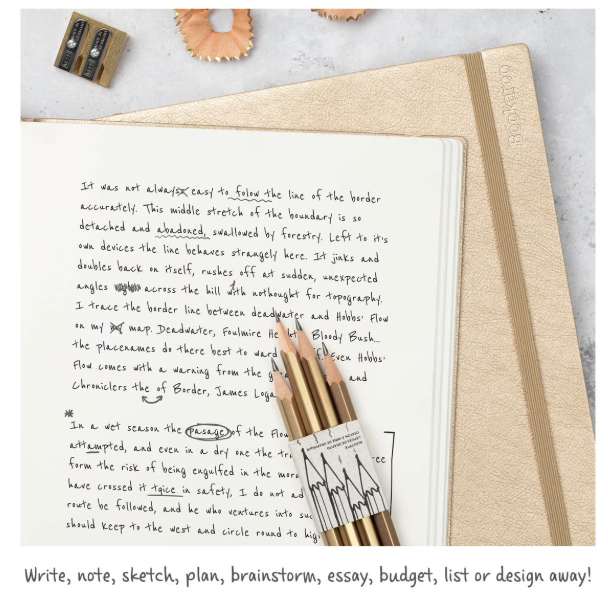 It was not always easy to folow the line of the border
accurately. This middle stretch of the boundary is so
detached and abadoned, swallowed by forestry. Left to it's
own devices the line behaves strangely here. It jinks and
doubles back on itself, rushes off at sudden, unexpected
angles across the hill with nothought for topography.
I trace the border line between deadwater and Hobbs' Flow
on my map. Deadwater, Foulmire He Bloody Bush...
the placenames do there best to ward Even Hobbs'
Flow comes with a warning from the and
Chroniclers the of Border, James Loga
*
In a wet season the pasage of the Flow
attampted, and even in a dry one the tr ree
form the risk of being engulfed in the mora
have crossed it tgice in safety, I do not ad
route be followed, and he who ventures into suc
should keep to the west and circle round to hig
bookaroo
Write, note, sketch, plan, brainstorm, essay, budget, list or design away!